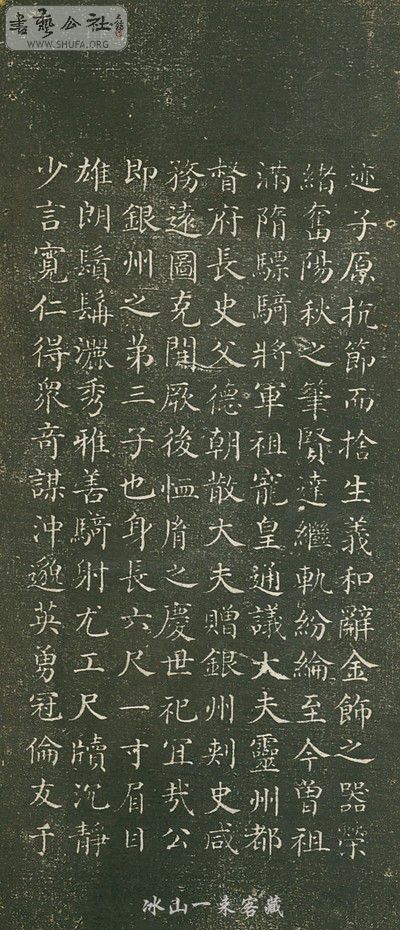 書藝公社
WWW.SHUFA.ORG
迹子原抗節而捨生義和辭金飾之器榮
緒奮陽秋之筆賢達繼軌紛綸至今曾祖
滿隋驃騎將軍祖寵皇通議大夫靈州都
督府長史父德朝散大夫贈銀州刺史咸
務遠圖克開厥後恤胤之慶世祀宜哉公
即銀州之第三子也身長六尺一寸眉目
雄朗鬚髯灑秀雅善騎射尤工尺牘沉靜
少言寬仁得衆奇謀沖邈英勇冠倫友于
冰山一来客藏